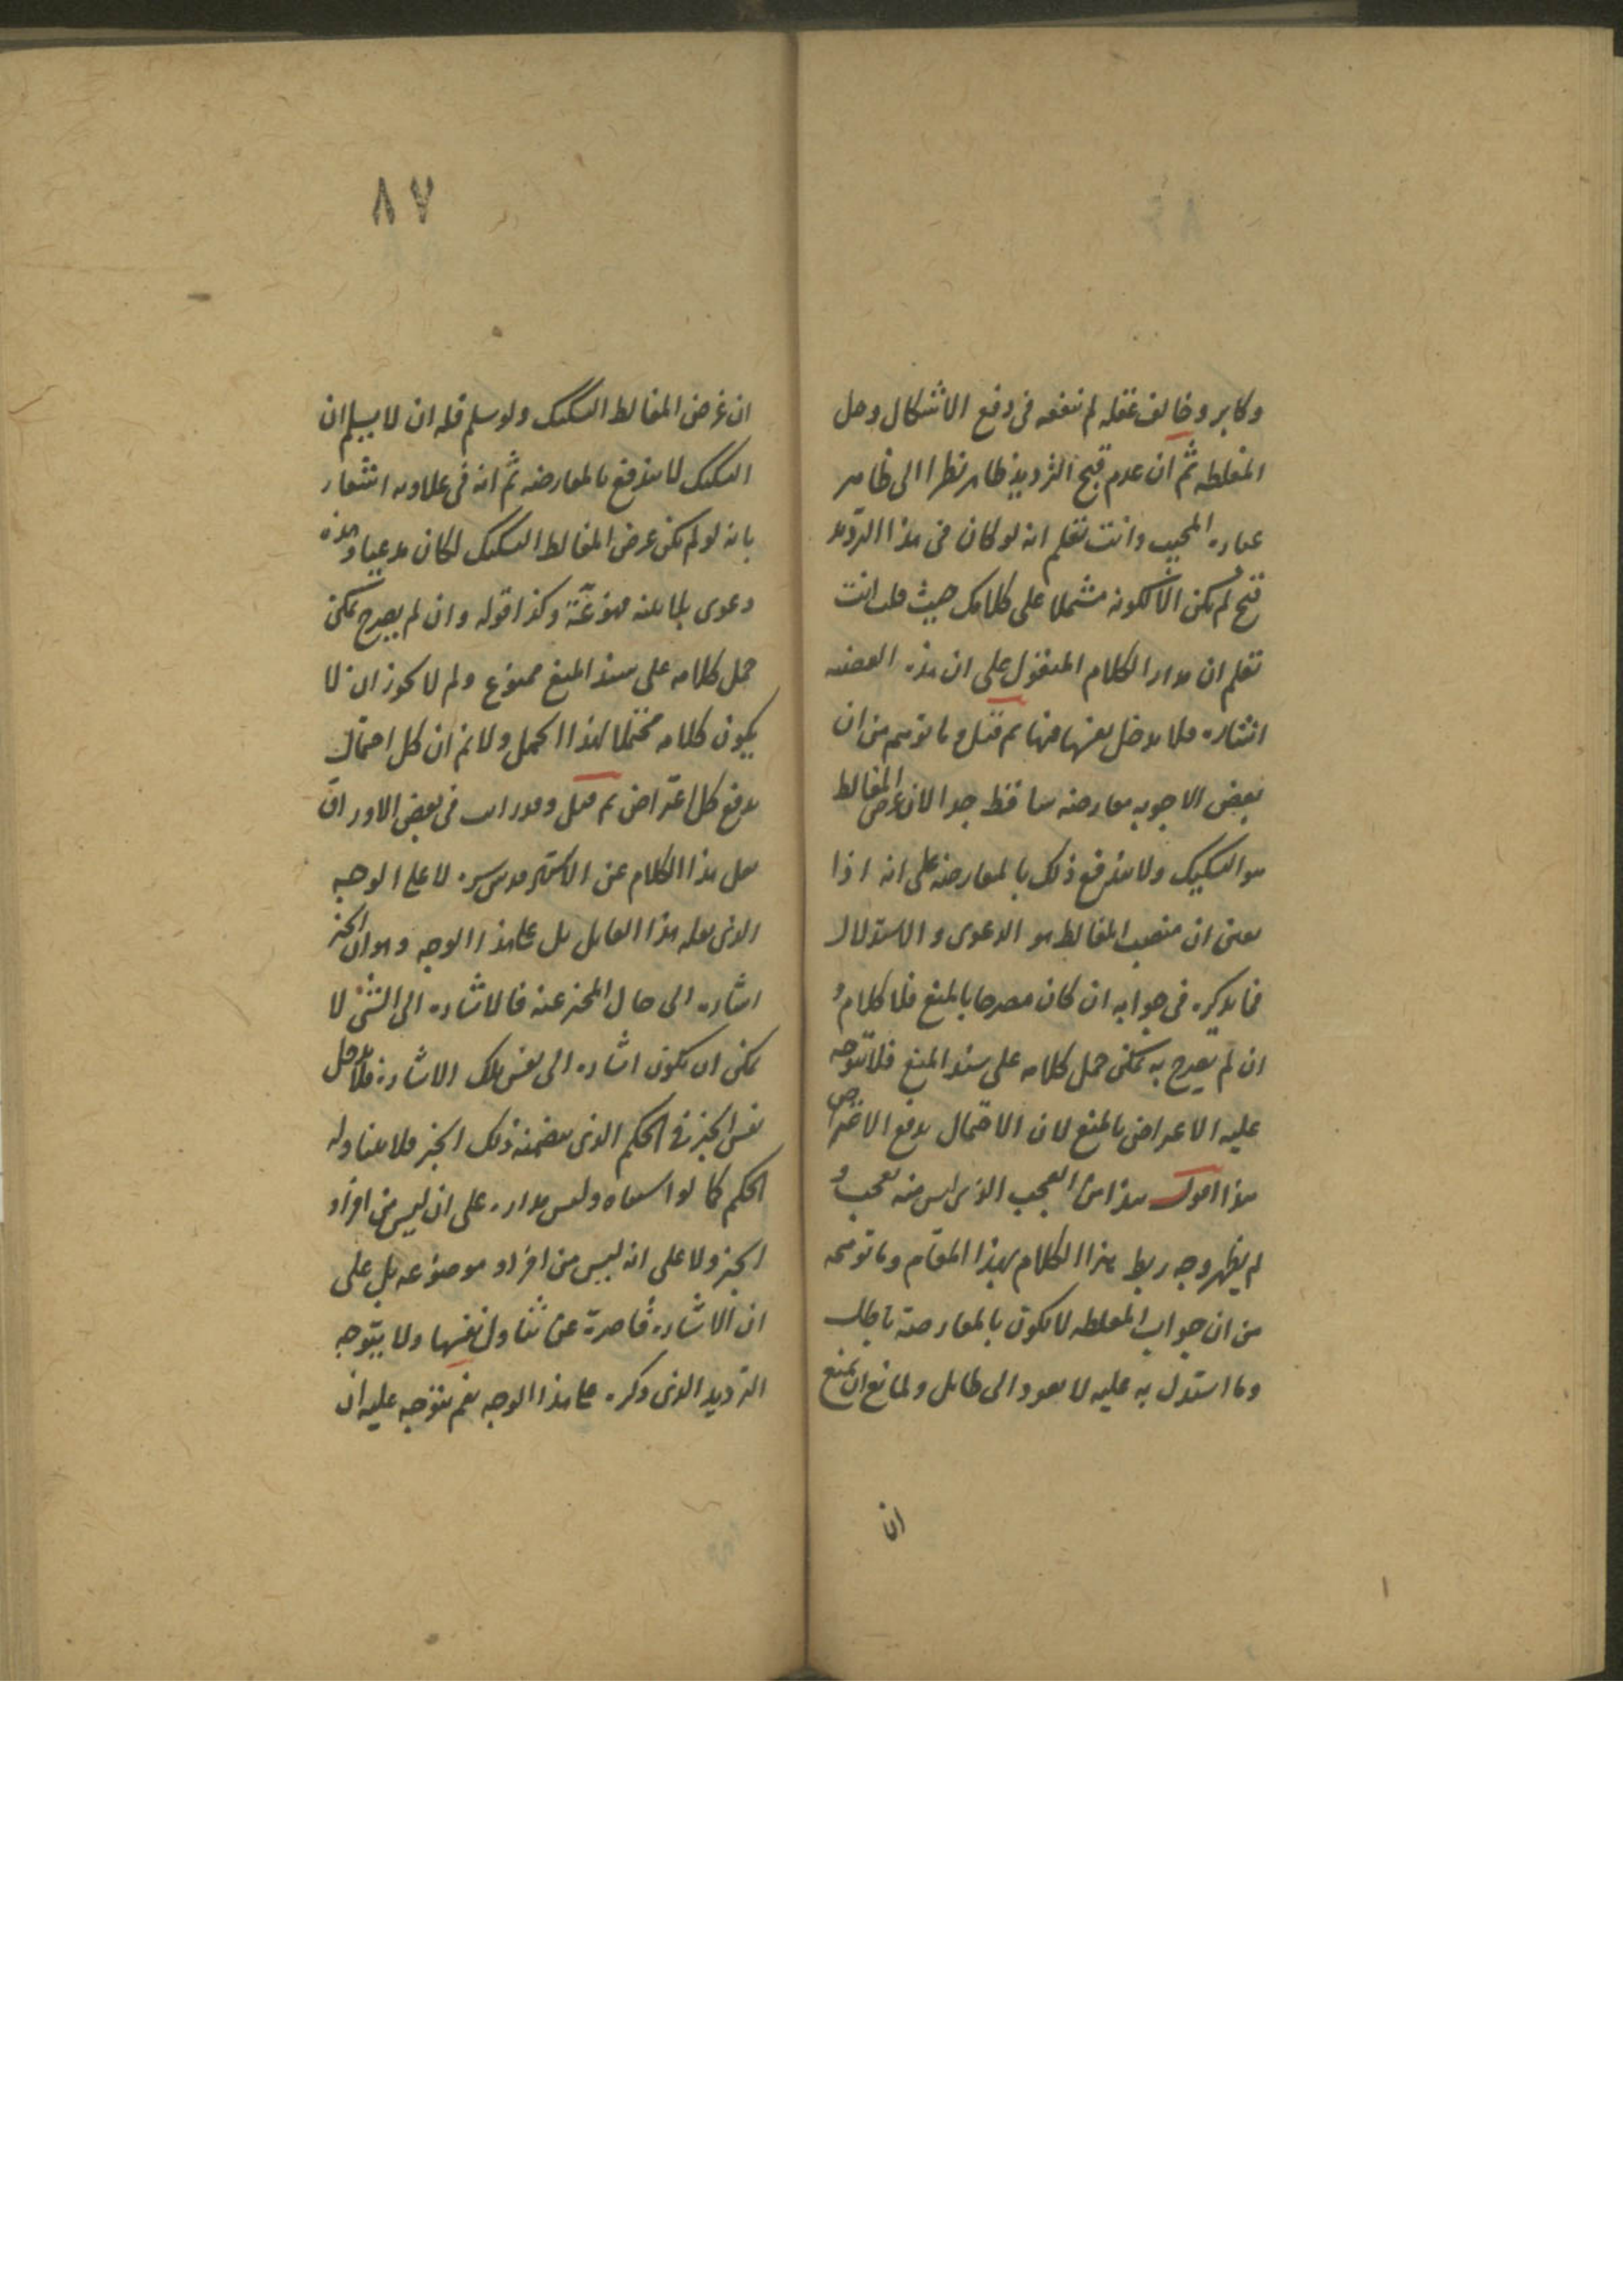 وكابر وخالف عقله لم ينفعه فى دفع الاشكال وحل
المغلطه ثم ان عدم قبح الترديد ظاهر نظرا الى ظاهر
عباره المجيب وانت تعلم انه لو كان فى هذا الترديد
قبح لم يكن الا لكونه مشتملا على كلامك حيث قلت انت
تعلم ان مدار الكلام المنقول على ان هذه القضيه
اشاره فلا يدخل نفسها فيها ثم قيل وما توهم من ان
بعض الاجوبه معارضه ساقط جدا لان غرض المغالط
هو التشكيك ولا يندفع ذلك بالمعارضه على انه اذا
يعنى ان منصب المغالط هو الدعوى والاستدلال
فما يذكره فى جوابه ان كان مصرحا بالمنع فلا كلام و
ان لم يصرح به يمكن حمل كلامه على سند المنع فلا يتوجه
عليه الاعتراض بالمنع لان الاحتمال يدفع الاعتراض
هذا اقول هذا من العجب الذى ليس منه عجب و
لم يظهر وجه ربط هذا الكلام بهذا المقام وما توهمه
من ان جواب المغلطه لا يكون بالمعارضة باطل
وما استدل به عليه لا يعود الى طايل ولمانع ان يمنع
ان
٨٧
ان غرض المغالط التشكيك ولو سلم فله ان لا يسلم ان
التشكيك لا يندفع بالمعارضه ثم انه فى علاوته اشعار
بانه لو لم يكن غرض المغالط التشكيك لكان مدعيا وهذه
دعوى بلا بينه ممنوعة وكذا قوله وان لم يصرح يمكن
حمل كلامه على سند المنع ممنوع ولم لا يجوز ان لا
يكون كلامه محتملا لهذا الحمل ولا نم ان كل احتمال
يدفع كل اعتراض ثم قيل وقد رايت فى بعض الاوراق
نقل هذا الكلام عن الاستاد قدس سره لا على الوجه
الذى نقله هذا القايل بل على هذا الوجه وهو ان الخبر
اشاره الى حال المخبر عنه فالاشاره الى الشى لا
يمكن ان يكون اشاره الى نفس تلك الاشاره فلا يدخل
نفس الخبر فى الحكم الذى يتضمنه ذلك الخبر فلا يتناوله
الحكم كما لو استثناه وليس مداره على ان ليس من افراد
الخبر ولا على انه ليس من افراد موضوعه بل على
ان الاشاره قاصرة عن تناول نفسها ولا يتوجه
الترديد الذى ذكره على هذا الوجه نعم يتوجه عليه ان